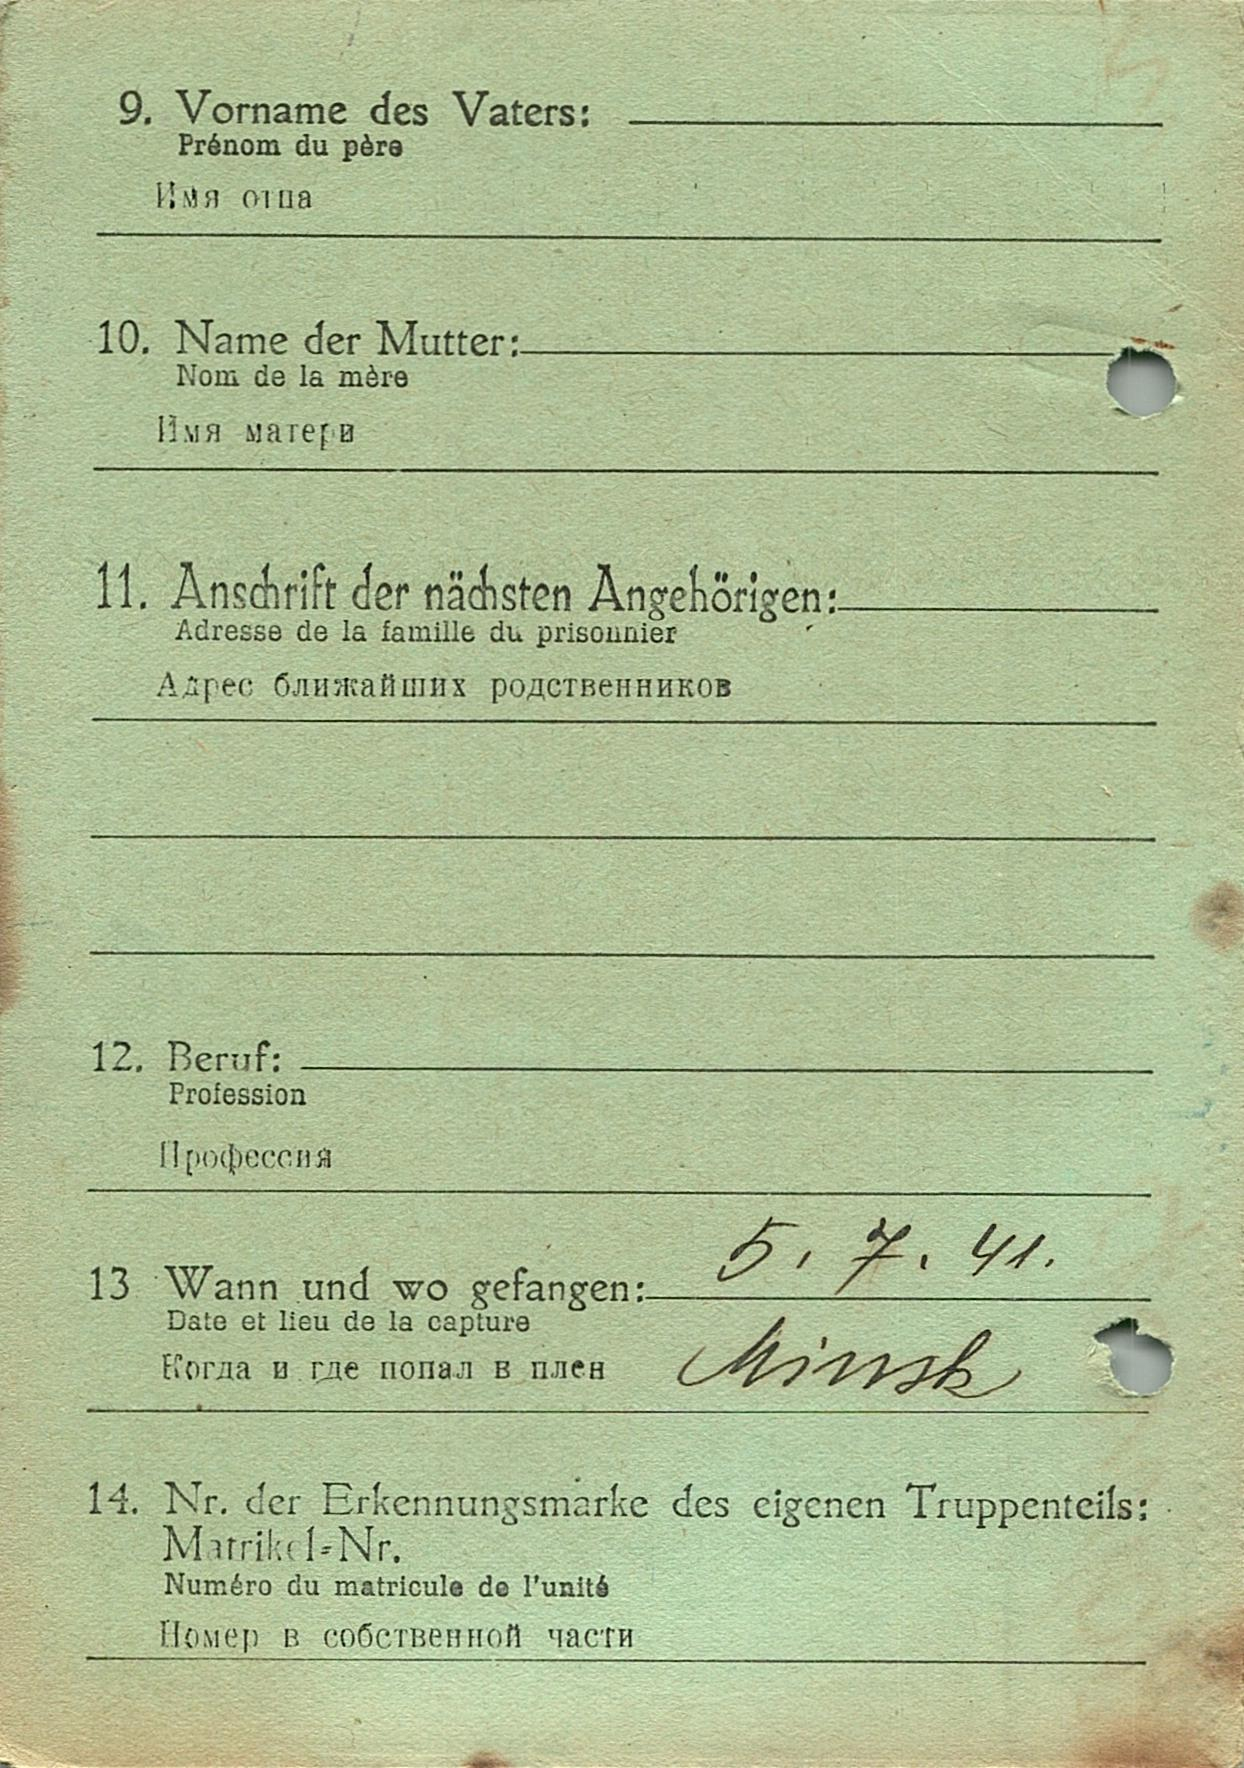 9. Vorname des Vaters:
Prénom du père
Имя отца
10. Name der Mutter:
Nom de la mère
Имя матери
11. Anschrift der nächsten Angehörigen:
Adresse de la famille du prisonnier
Адрес ближайших родственников
12. Beruf:
Profession
Профессия
5. 7. 41.
13 Wann und wo gefangen:
Date et lieu de la capture
Когда и где попал в плен Minsk
14. Nr. der Erkennungsmarke des eigenen Truppenteils:
Matrikel-Nr.
Numéro du matricule de l'unité
Номер в собственной части